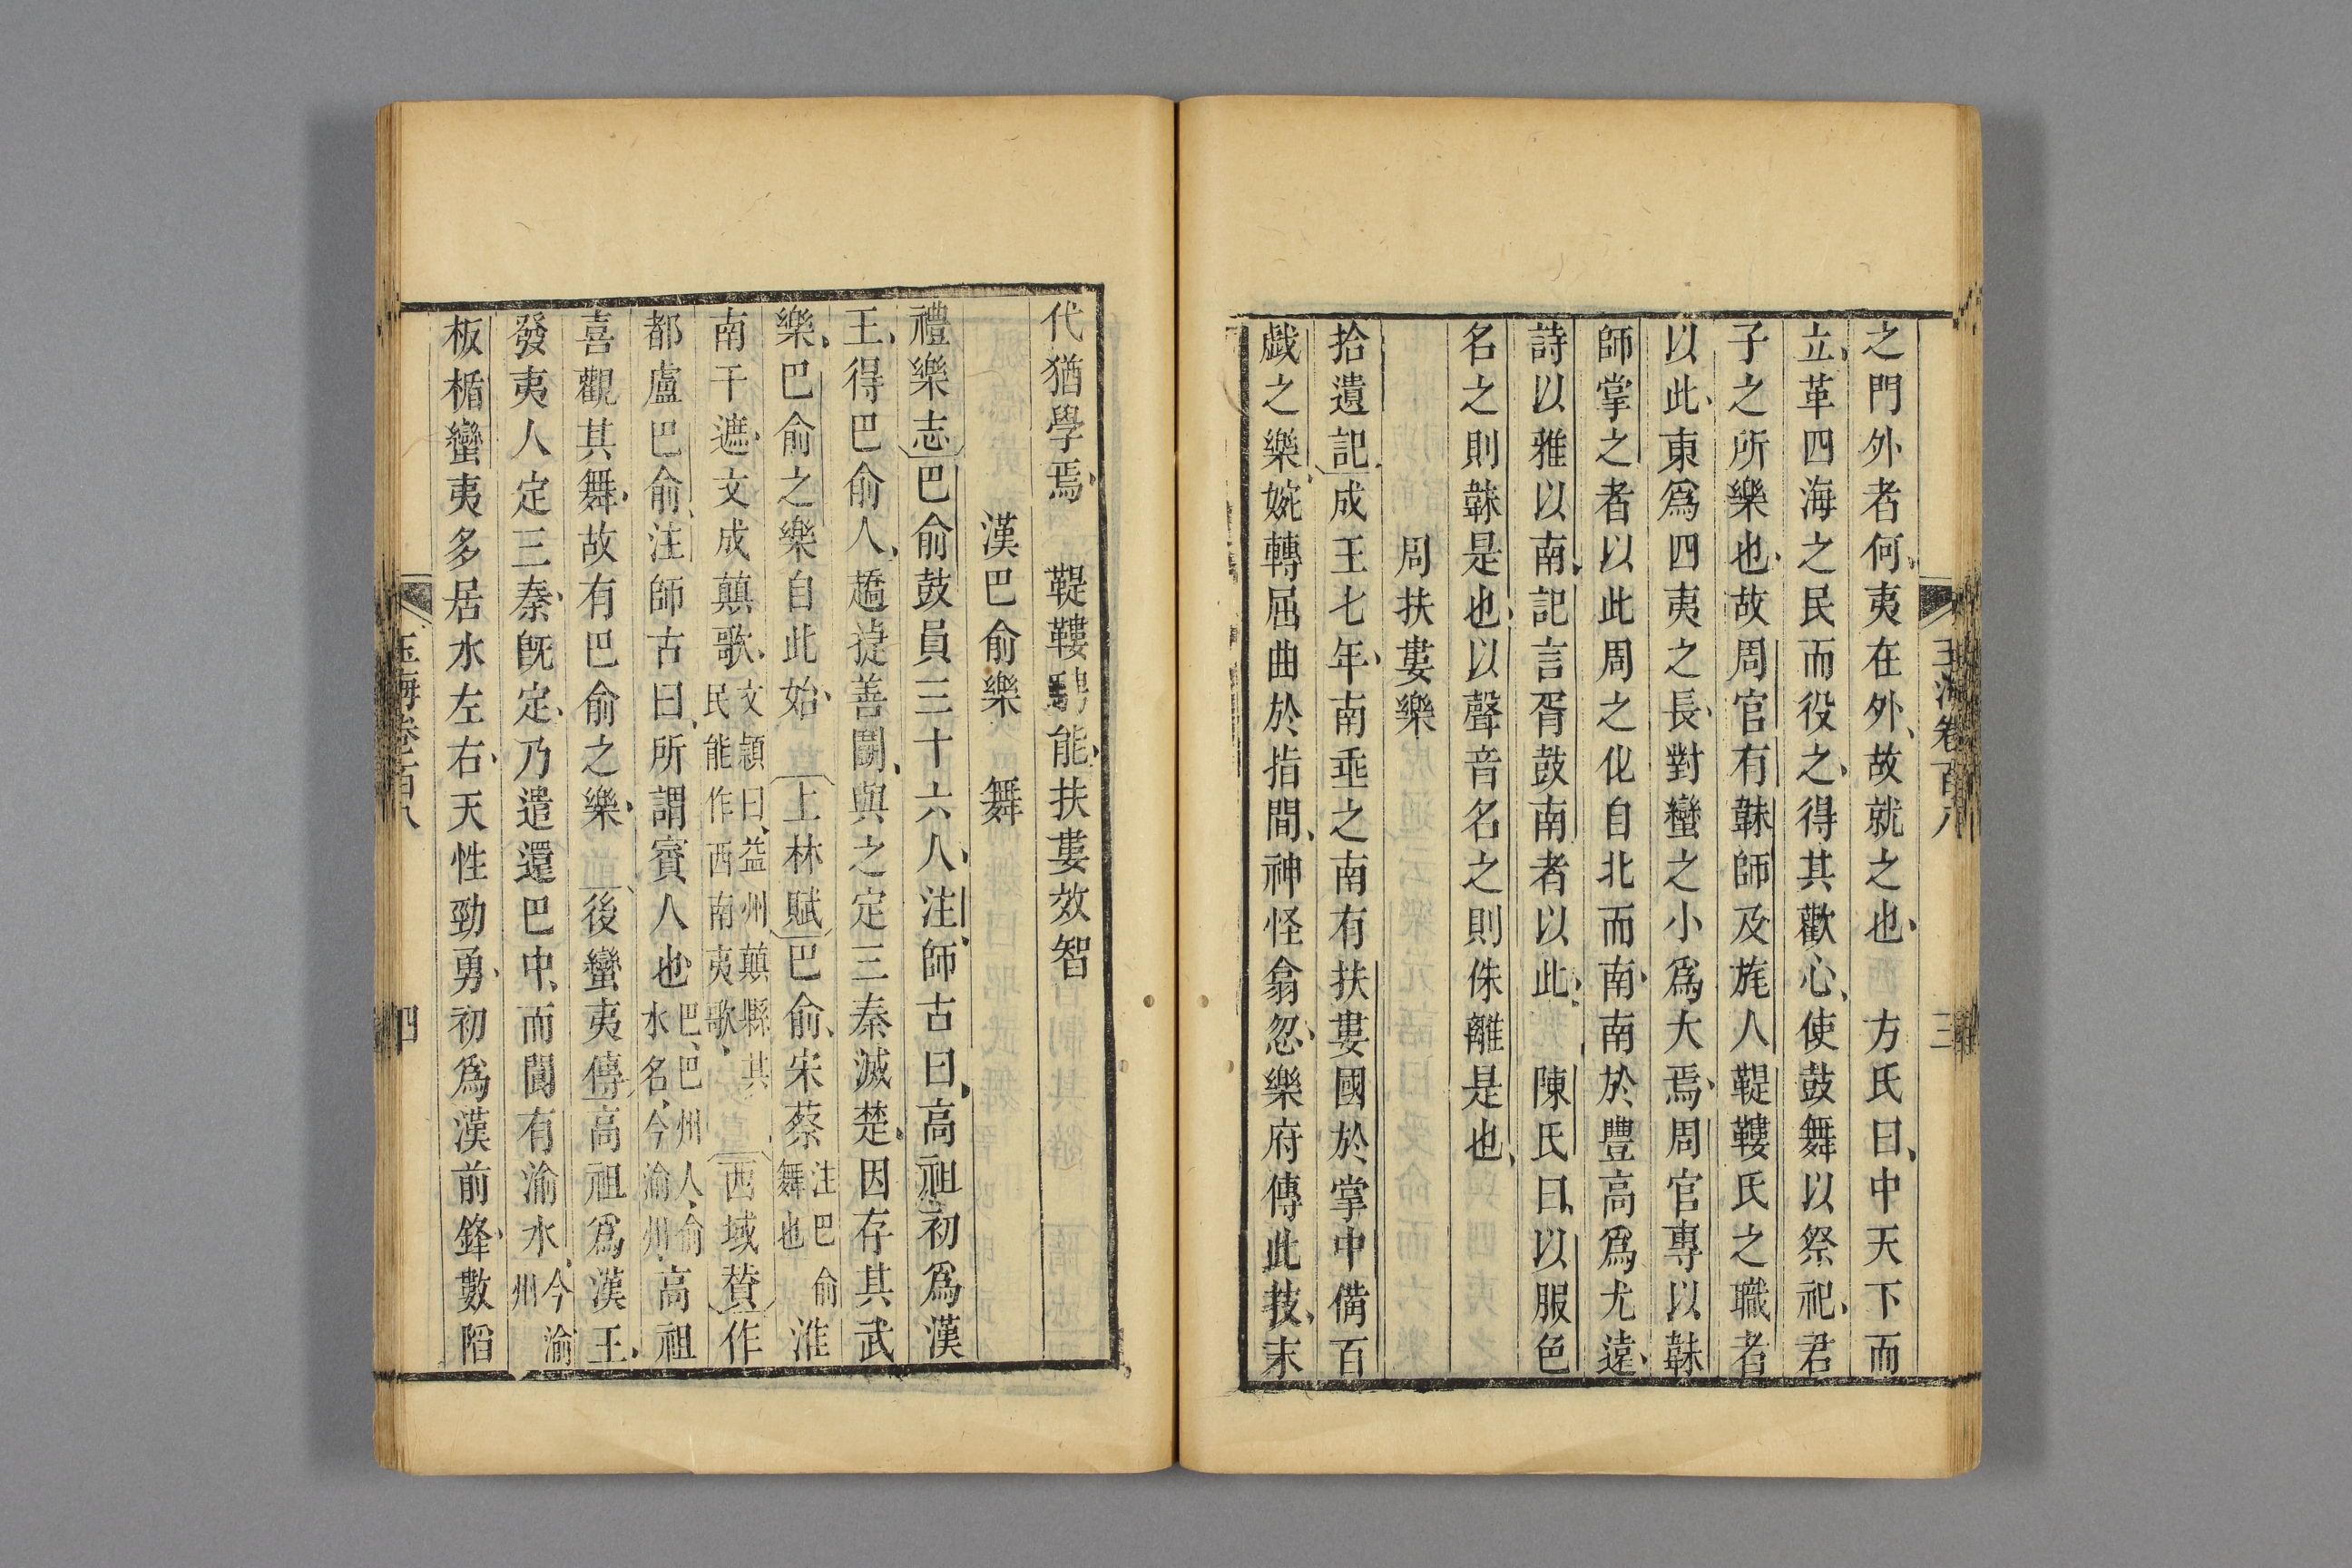 玉海卷百八
三
之門外者何夷在外故就之也 方氏曰中天下而
立革四海之民而役之得其歡心使鼓舞以祭祀君
子之所樂也故周官有韎師及旄人鞮鞻氏之職者
以此東爲四夷之長對蠻之小爲大焉周官專以韎
師掌之者以此周之化自北而南南於豐高爲尤遠
詩以雅以南記言胥鼓南者以此 陳氏曰以服色
名之則韎是也以聲音名之則侏離是也
周扶婁樂
拾遺記成王七年南垂之南有扶婁國於掌中備百
戲之樂婉轉屈曲於指間神怪翕忽樂府傳此技末
代猶學焉 鞮鞻騁能扶婁效智
漢巴俞樂 舞
禮樂志巴俞鼓員三十六人注師古曰高祖初爲漢
王得巴俞人趫捷善鬭與之定三秦滅楚因存其武
樂巴俞之樂自此始 上林賦巴俞宋蔡注巴俞舞也淮
南干遮文成蘋歌文頴曰益州蘋縣其民能作西南夷歌 西域贊作
都盧巴俞注師古曰所謂賓人也巴巴州人俞水名今渝州高祖
喜觀其舞故有巴俞之樂 後蠻夷傳高祖爲漢王
發夷人定三秦旣定乃遣還巴中而閬有渝水今渝州
板楯蠻夷多居水左右天性勁勇初爲漢前鋒數陷
玉海卷百八
四